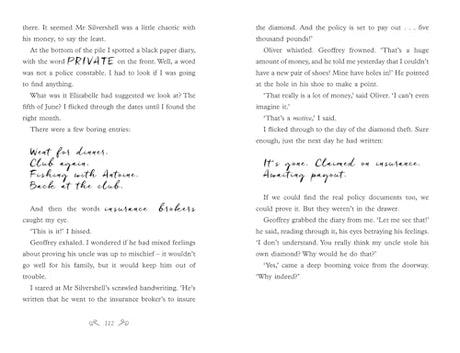 there. It seemed Mr Silvershell was a little chaotic with
his money, to say the least.
At the bottom of the pile I spotted a black paper diary,
with the word PRIVATE on the front. Well, a word
was not a police constable. I had to look if I was going
to find anything.
What was it Elizabelle had suggested we look at? The
fifth of June? I flicked through the dates until I found the
right month.
There were a few boring entries:
Went for dinner.
Club again.
Fishing with Antoine.
Back at the club.
And then the words insurance brokers
caught my eye.
‘This is it!’ I hissed.
Geoffrey exhaled. I wondered if he had mixed feelings
about proving his uncle was up to mischief – it wouldn’t
go well for his family, but it would keep him out of
trouble.
I stared at Mr Silvershell’s scrawled handwriting. ‘He’s
written that he went to the insurance broker’s to insure
122
the diamond. And the policy is set to pay out . . . five
thousand pounds!’
Oliver whistled. Geoffrey frowned. ‘That’s a huge
amount of money, and he told me yesterday that I couldn’t
have a new pair of shoes! Mine have holes in!’ He pointed
at the hole in his shoe to make a point.
‘That really is a lot of money,’ said Oliver. ‘I can’t even
imagine it.’
‘That’s a motive,’ I said.
I flicked through to the day of the diamond theft. Sure
enough, just the next day he had written:
It's gone. Claimed on insurance.
Awaiting payout.
If we could find the real policy documents too, we
could prove it. But they weren’t in the drawer.
Geoffrey grabbed the diary from me. ‘Let me see that!’
he said, reading through it, his eyes betraying his feelings.
‘I don’t understand. You really think my uncle stole his
own diamond? Why would he do that?’
‘Yes,’ came a deep booming voice from the doorway.
‘Why indeed?’